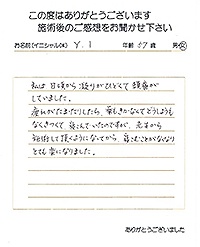 この度はありがとうございます
施術後のご感想をお聞かせ下さい
お名前(イニシャルOK) Y.I 年齢 57歳 男・女
私は日頃から凝りがひどくて頭痛が
していました。
疲れがたまったりしたら、薬もきかなくてどうしようも
なくきつくて寝こんでいたのですが、先生から
施術して頂くようになってから、寝こむことがなくなり
とても楽になりました。
ありがとうございました